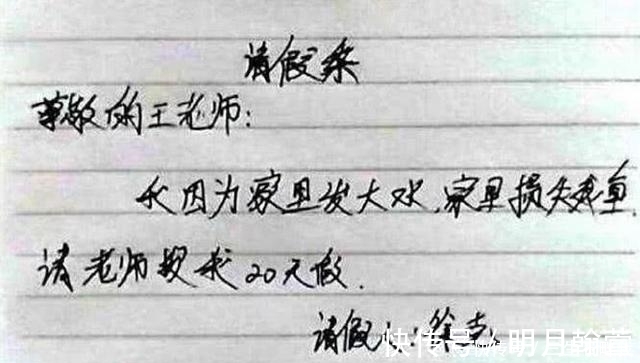 请假条
尊敬的王老师:
我因为家里发大水,家里损失重
请老师我20天假.
请假人:徐
快传号/明月翰